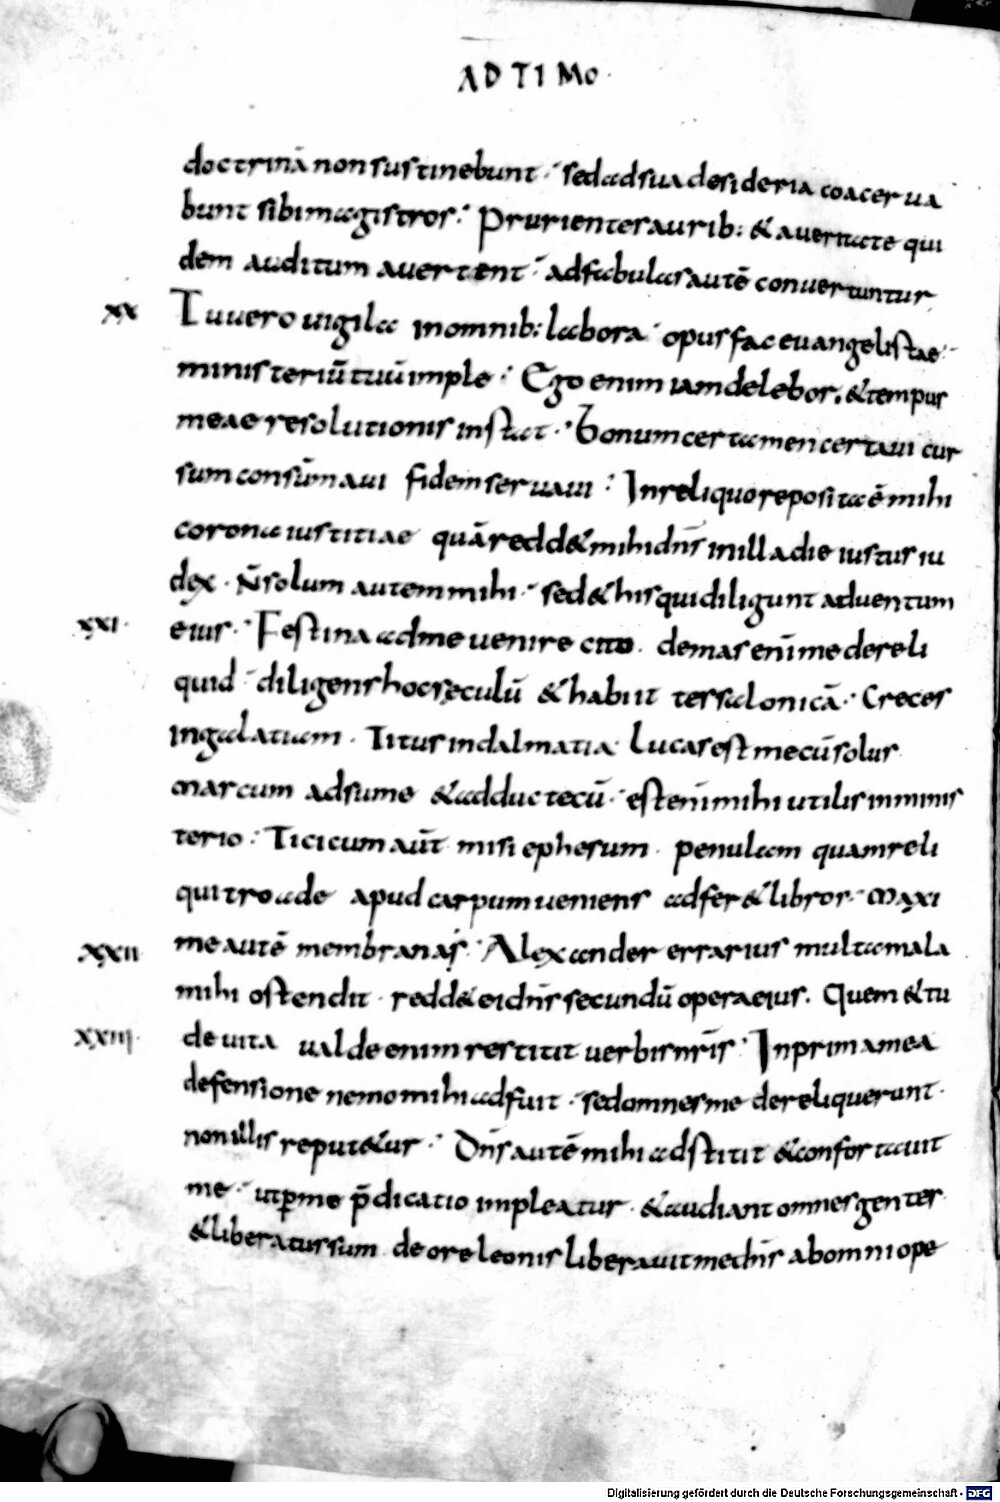 AD TIMO·
doctrinā non sustinebunt · sed ad sua desideria coacerua
bunt sibi magistros · Prurientes aurib: & a ueritate qui
dem auditum auertent · ad fabulas autē conuertuntur
xx Tu uero uigila in omnib: labora · opus fac euangelistae ·
ministeriū tuū imple · Ego enim iam delebor, & tempus
meae resolutionis instat · Bonum certamen certaui cur
sum consūmaui fidem seruaui : In reliquo reposita ē mihi
corona iustitiae quā redd& mihi dn̄s in illa die iustus iu
dex · N̄ solum autem mihi · sed & his qui diligunt aduentum
xxi · eius · Festina ad me uenire cito · demas enī me dereli
quid · diligens hoc seculū & habiit tessalonicā · Creces
in galatiam · Titus in dalmatia Lucas est mecū solus ·
marcum adsume & adduc tecū · est enī mihi utilis in minis
terio : Ticicum aūt misi ephesum · penulam quam reli
qui troade apud carpum ueniens adfer & libros · Maxi
xxii me autē membranas · Alexander errarius multa mala
mihi ostendit · redd& ei dn̄s secundū opera eius. Quem & tu
xxiii · deuita ualde enim restitit uerbis nr̄is · In prima mea
defensione nemo mihi adfuit · sed omnes me dereliquerunt ·
non illis reput&ur · Dn̄s autē mihi adstitit & confortauit
me · ut ꝑ me p̄dicatio impleatur · & audiant omnes gentes
& liberatus sum de ore leonis liberauit me dn̄s ab omni ope
Digitalisierung gefördert durch die Deutsche Forschungsgemeinschaft - DFG